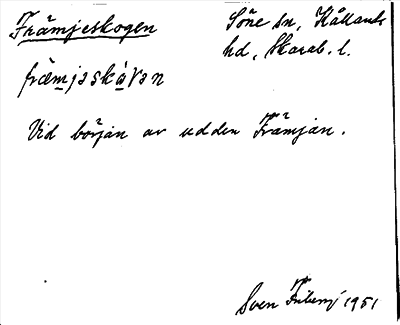 Främjeskogen
Söne sn, Kållands
hd, Skarab. l.
främjəskåvən
Vid början av udden Främjan.
Sven 1951